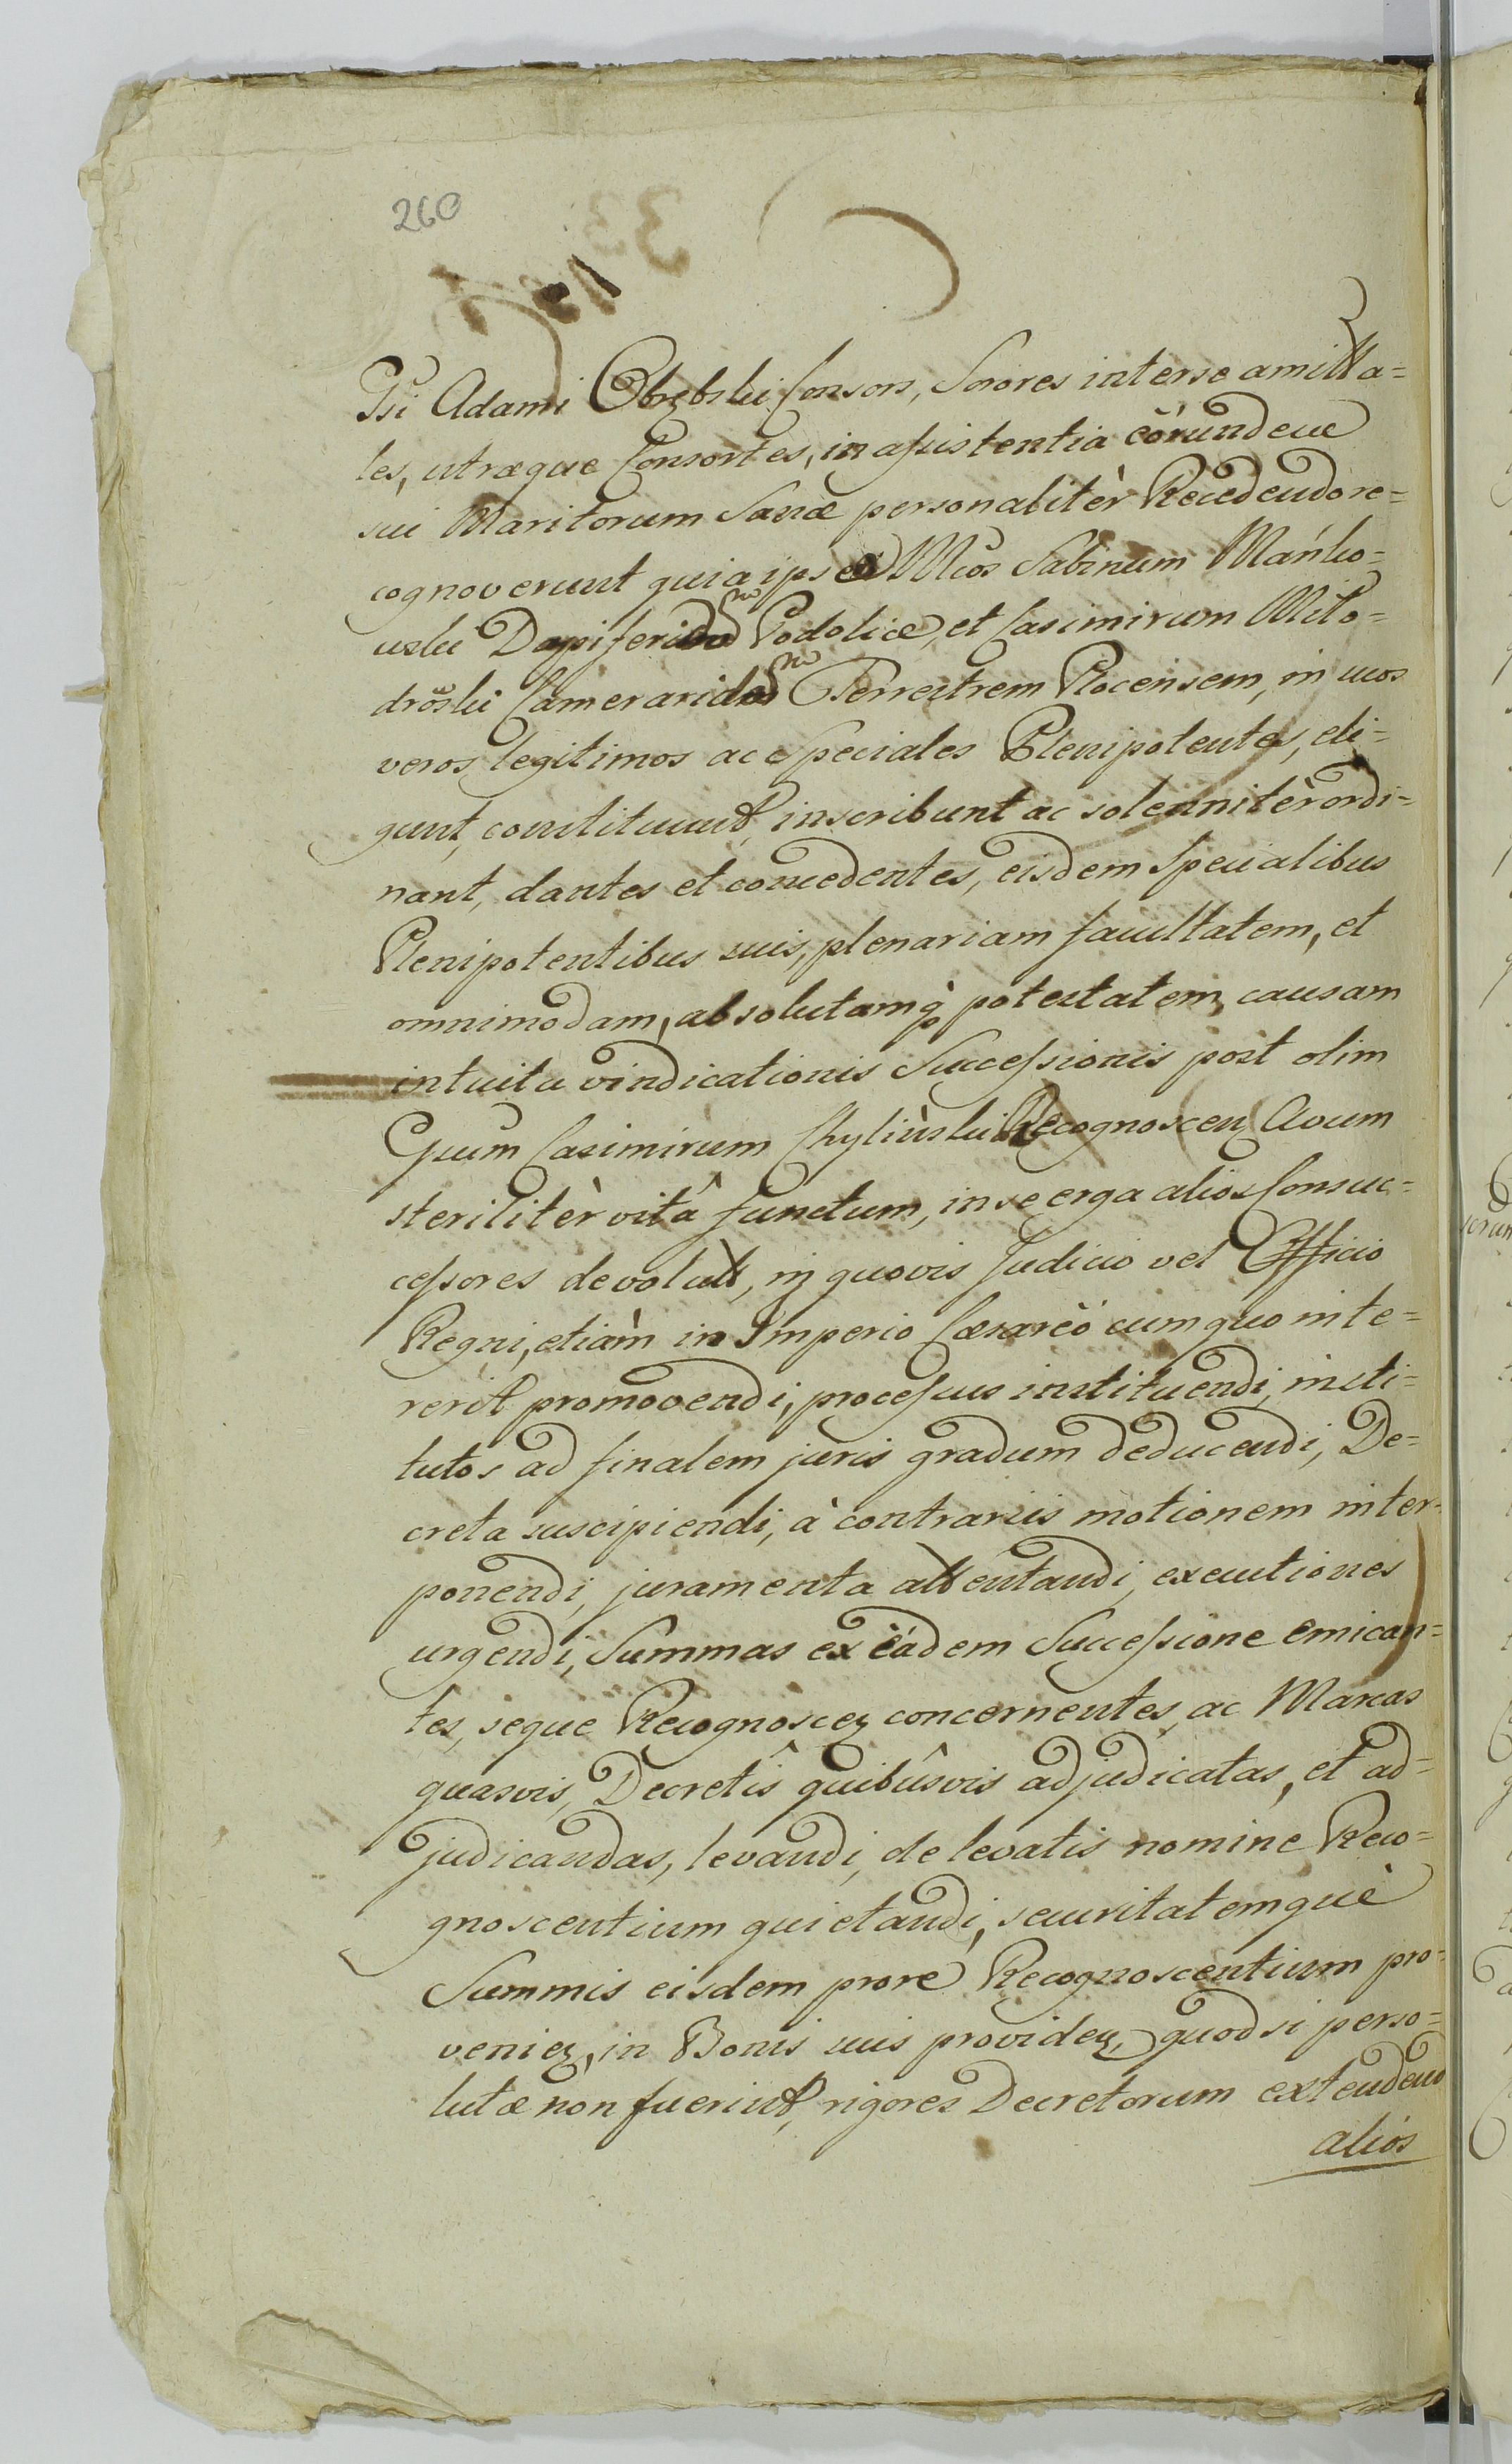 260
Gsi Adami Obrębski Consors, Sorores interse amitta=
les, utræque Consortes, in assistentia eórundem
sui Maritorum Sanæ personalitèr Recedendo re=
cognoverunt quia ipsæ Mcos Sabinum Mańko=
wski Dapiferum Podoliæ, et Casimirum Miło=
dróski Camerarium Terrestrem Plocensem, in suos
veros, legitimos ac speciales Plenipotentes, eli=
gunt, constituunt, inscribunt ac solennitèr ordi=
nant, dantes et concedentes, eisdem Specialibus
Plenipotentibus suis, plenariam facultatem, et
omnimodam, absolutamq̀ potestatem, causam
intuitu vindicationis Successionis post olim
Gsum Casimirum Chyliński Recognoscen Avum
sterilitèr vitâ functum, in se erga alios Consuc=
cessores devolutt, in quovis Judicio vel Officio
Regni, etiàm in Imperio Cæsareó cum quo inte=
rerit promovendi, processus instituendi, insti=
tutos ad finalem juris gradum deducendi, De=
creta suscipiendi, à contrariis motionem inter=
ponendi, juramenta attentandi, executiones
urgendi, Summas ex eádem Successione emican=
tes, seque Recognoscen concernentes, ac Marcas
quasvis, Decretîs quibûsvis adjudicatas, et ad=
judicandas, levandi, de levatis nomine Reco=
gnoscentium quietandi, securitatemquè
Summis eisdem prore Recognoscentium pro=
venien, in Bonis suis providen, quodsi perso=
lutæ non fuerint, rigores Decretorum extenden
aliós